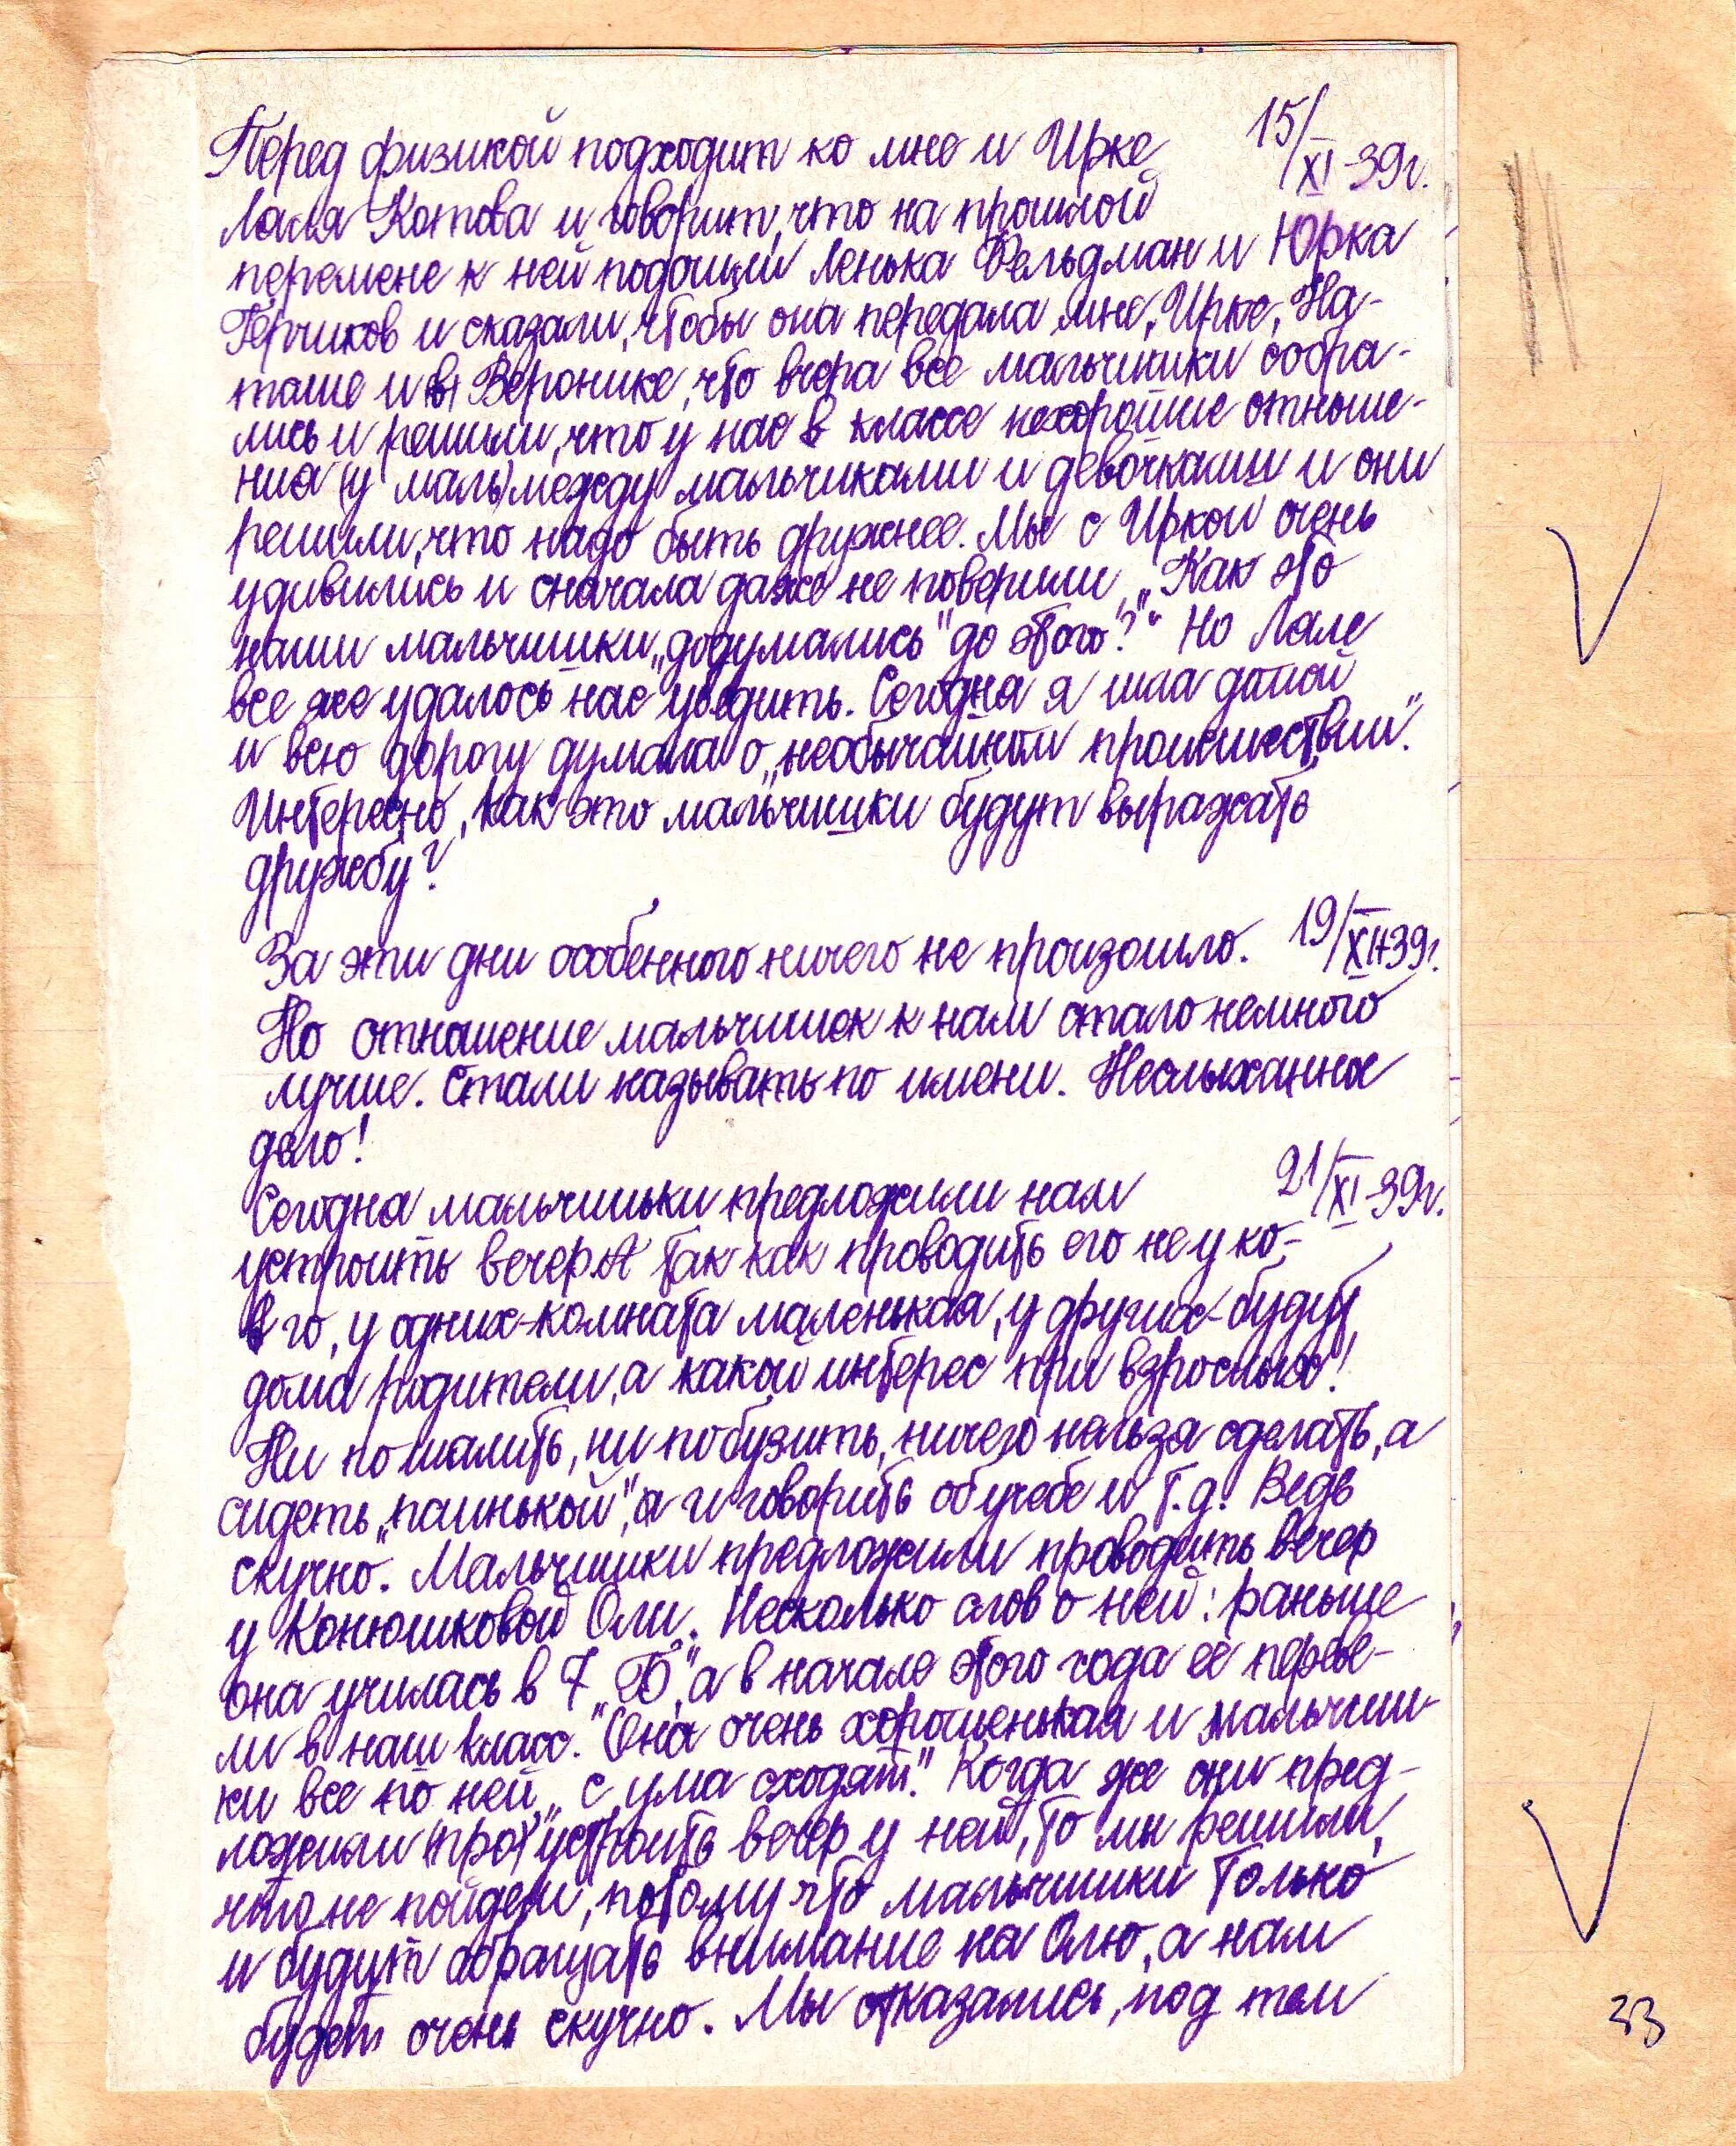 15/XI-39г.
Перед физикой подходит ко мне и Ирке
Ляля Котова и говорит, что на прошлой
перемене к ней подошли Ленька Фельдман и Юрка
Герчиков и сказали, чтобы она передала мне, Ирке, На-
таше и Веронике, что вчера все мальчишки собра-
лись и решили, что у нас в классе нехорошие отноше-
ния (у маль) между мальчиками и девочками и они
решили, что надо быть дружнее. Мы с Иркой очень
удивились и сначала даже не поверили „Как это
наши мальчишки „додумались" до этого?" Но Ляле
все же удалось нас убедить. Сегодня я шла домой
и всю дорогу думала о „необычайном происшествии".
Интересно, как это мальчишки будут выражать
дружбу?
19/XI-39г.
За эти дни особенного ничего не произошло.
Но отношение мальчишек к нам стало немного
лучше. Стали называть по имени. Неслыханное
дело!
21/XI-39г.
Сегодня мальчишки предложили нам
устроить вечер. А так как проводить его не у ко-
го, у одних-комната маленькая, у других-будут
дома родители, а какой интерес при взрослых!
Ни пошалить, ни побузить, ничего нельзя сделать, а
сидеть „паинькой", и говорить об учебе и т.д. Ведь
скучно. Мальчишки предложили проводить вечер
у Конюшковой Оли. Несколько слов о ней: раньше
она училась в 7 „Б", а в начале этого года ее переве-
ли в наш класс. Она очень хорошенькая и мальчиш-
ки все по ней „с ума сходят." Когда же они пред-
ложили (про) устроить вечер у ней, то мы решили,
что не пойдем, потому что мальчишки только
и будут обращать внимание на Олю, а нам
будет очень скучно. Мы отказались, под тем
33